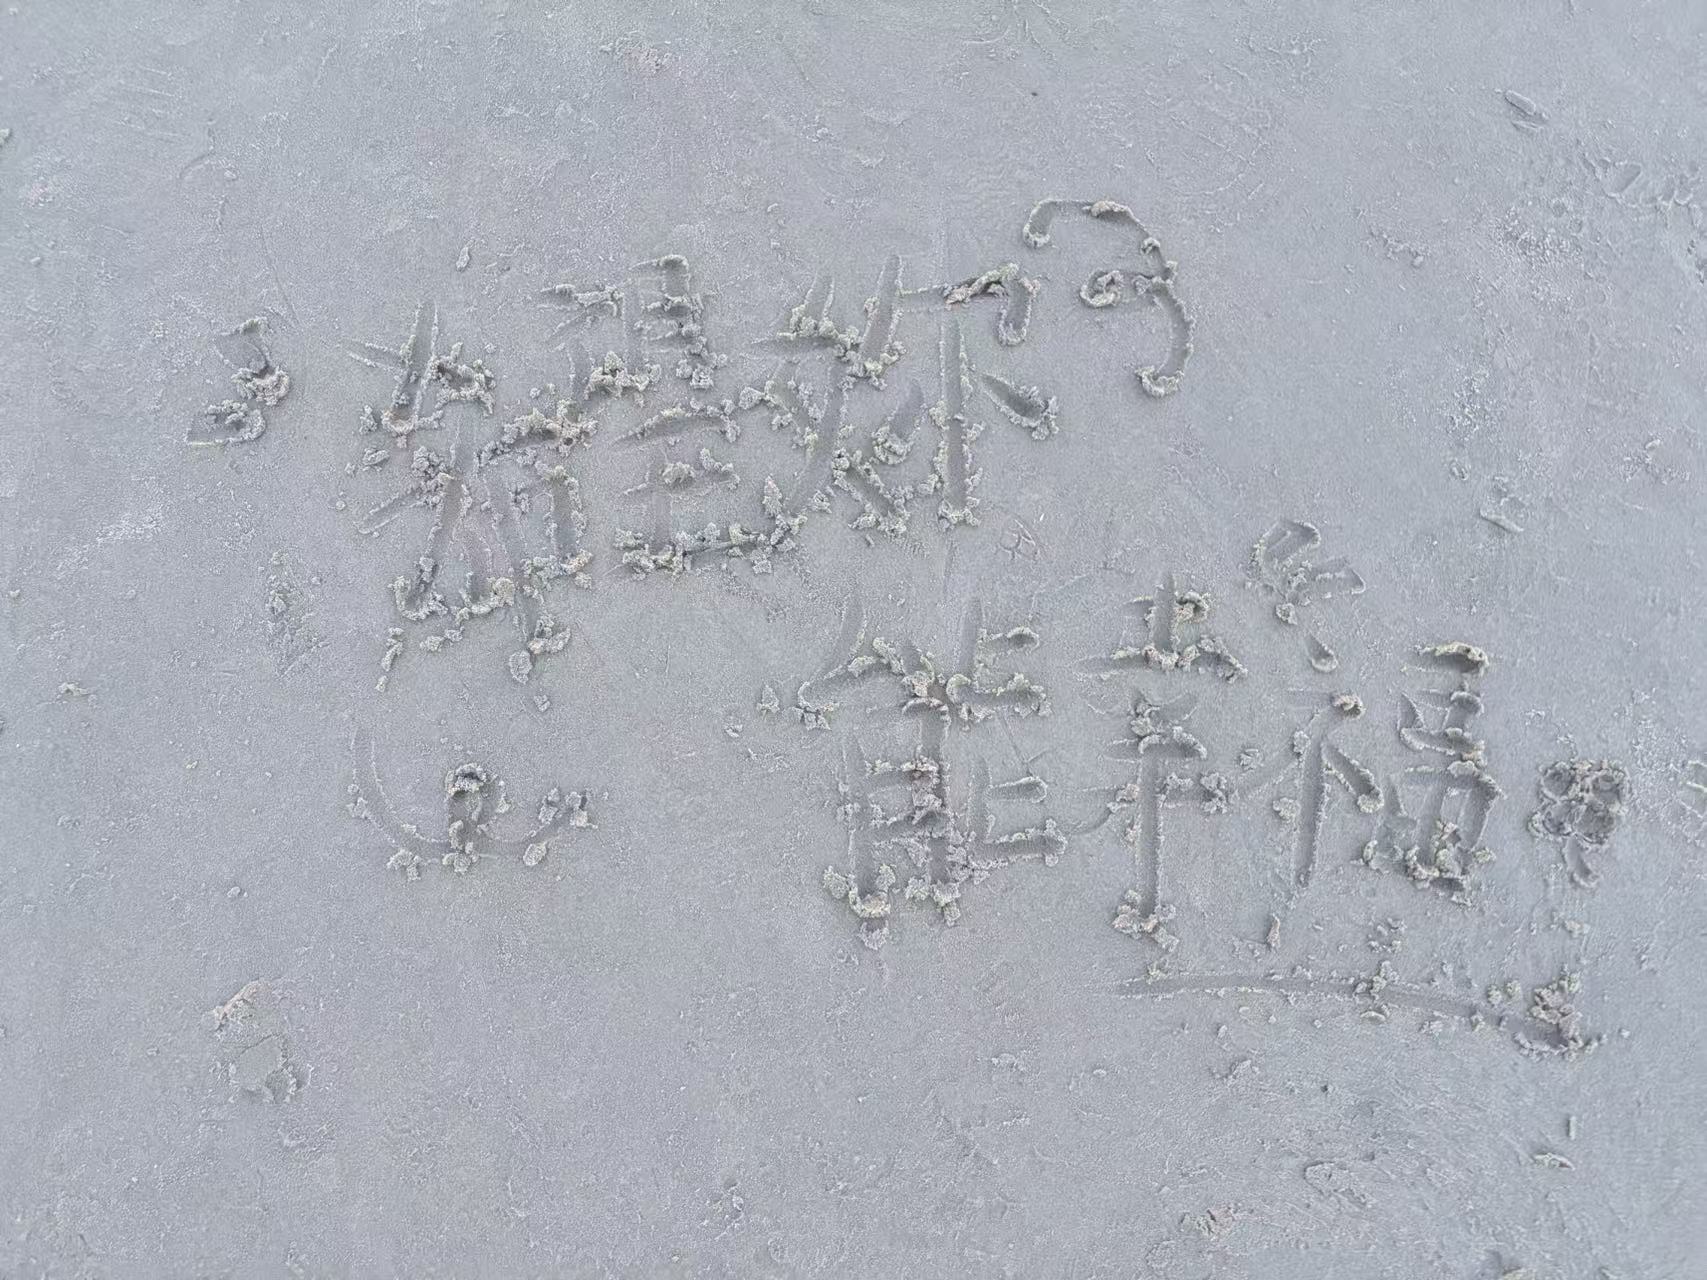 希望妳
能幸福